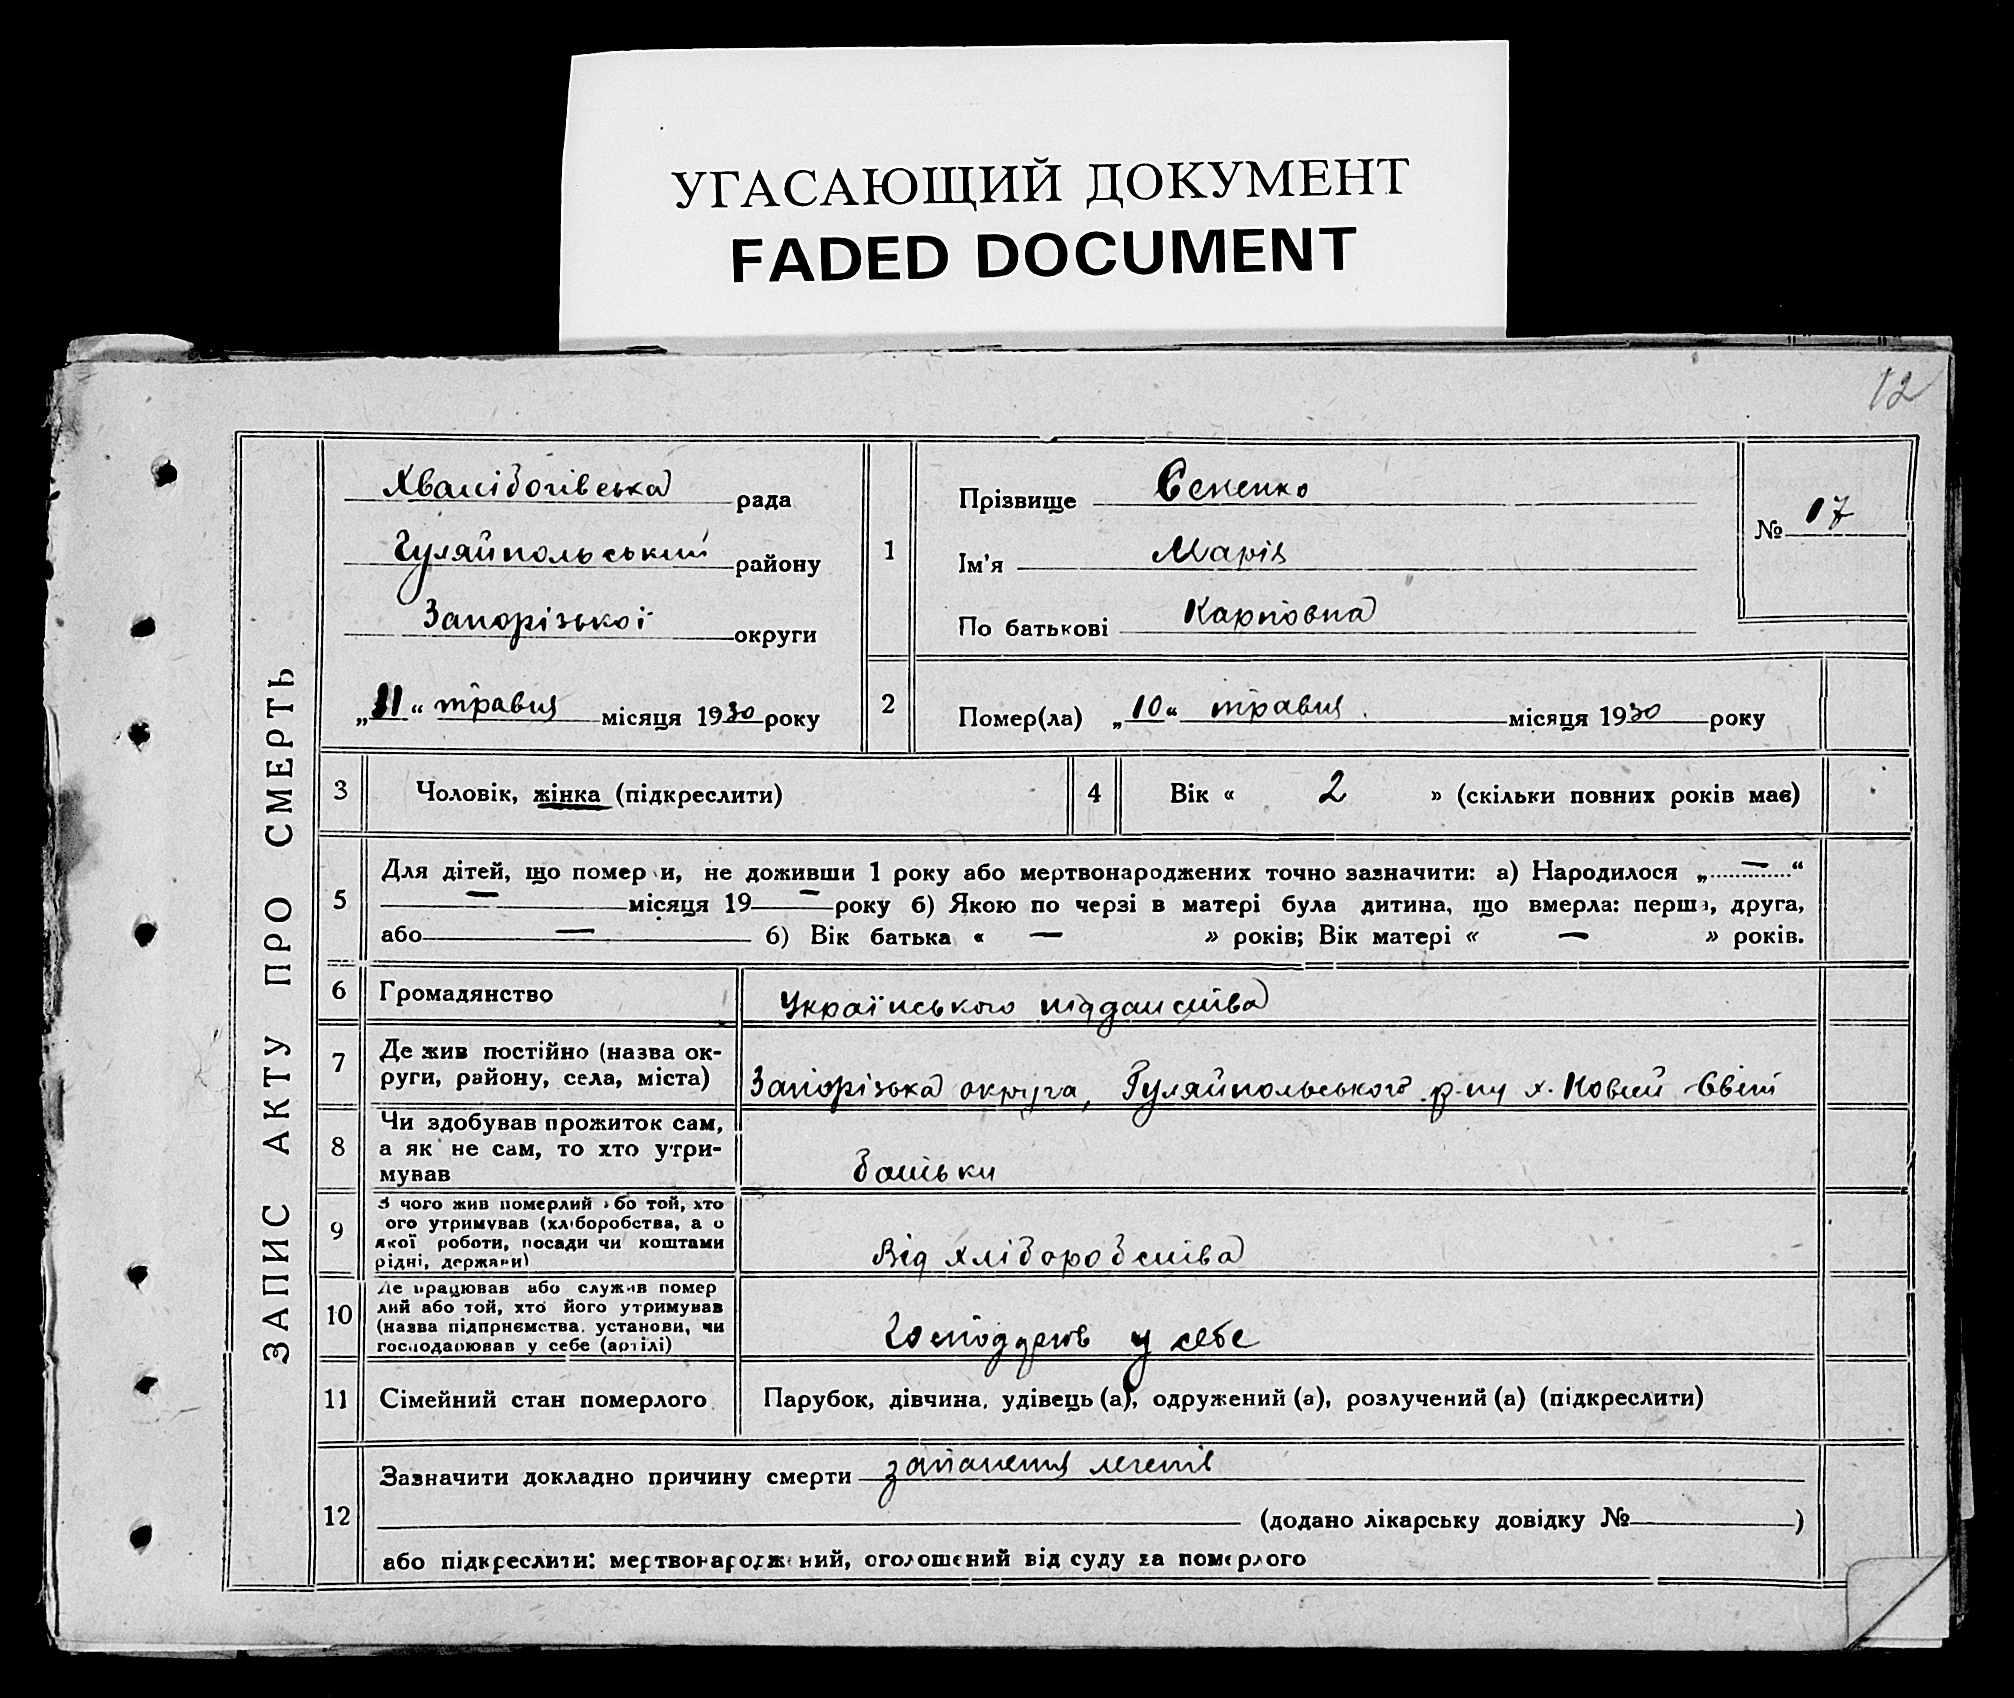 УГАСАЮЩИЙ ДОКУМЕНТ
FADED DOCUMENT
12
ЗАПИС АКТУ ПРО СМЕРТЬ
Хвалібогівська рада
Гуляйпольський району
Запорізької округи
„11“ травня місяця 1930 року
1
Прізвище Єсненко
Ім'я Марія
По батькові Карповна
№ 17
2
Помер(ла) „10“ травня місяця 1930 року
3
Чоловік, жінка (підкреслити)
4
Вік « 2 » (скільки повних років має)
5
Для дітей, що помер и, не доживши 1 року або мертвонароджених точно зазначити: а) Народилося „—“
— місяця 19 — року б) Якою по черзі в матері була дитина, що вмерла: перша, друга,
або — б) Вік батька « — » років; Вік матері « — » років.
6
Громадянство
Українського підданства
7
Де жив постійно (назва ок-
руги, району, села, міста)
Запорізька округа, Гуляйпольського р-ну х. Новий Світ
8
Чи здобував прожиток сам,
а як не сам, то хто утри-
мував
батьки
9
З чого жив померлий або той, хто
ого утримував (хліборобства, а о
якої роботи, посади чи коштами
рідні, держави)
Від хліборобства
10
Де працював або служив помер
лий або той, хто його утримував
(назва підприємства, установи, чи
господарював у себе (артілі)
Господарюв у себе
11
Сімейний стан померлого
Парубок, дівчина, удівець (а), одружений (а), розлучений (а) (підкреслити)
12
Зазначити докладно причину смерти запалення легенів
(додано лікарську довідку № )
або підкреслити: мертвонароджений, оголошений від суду за померлого